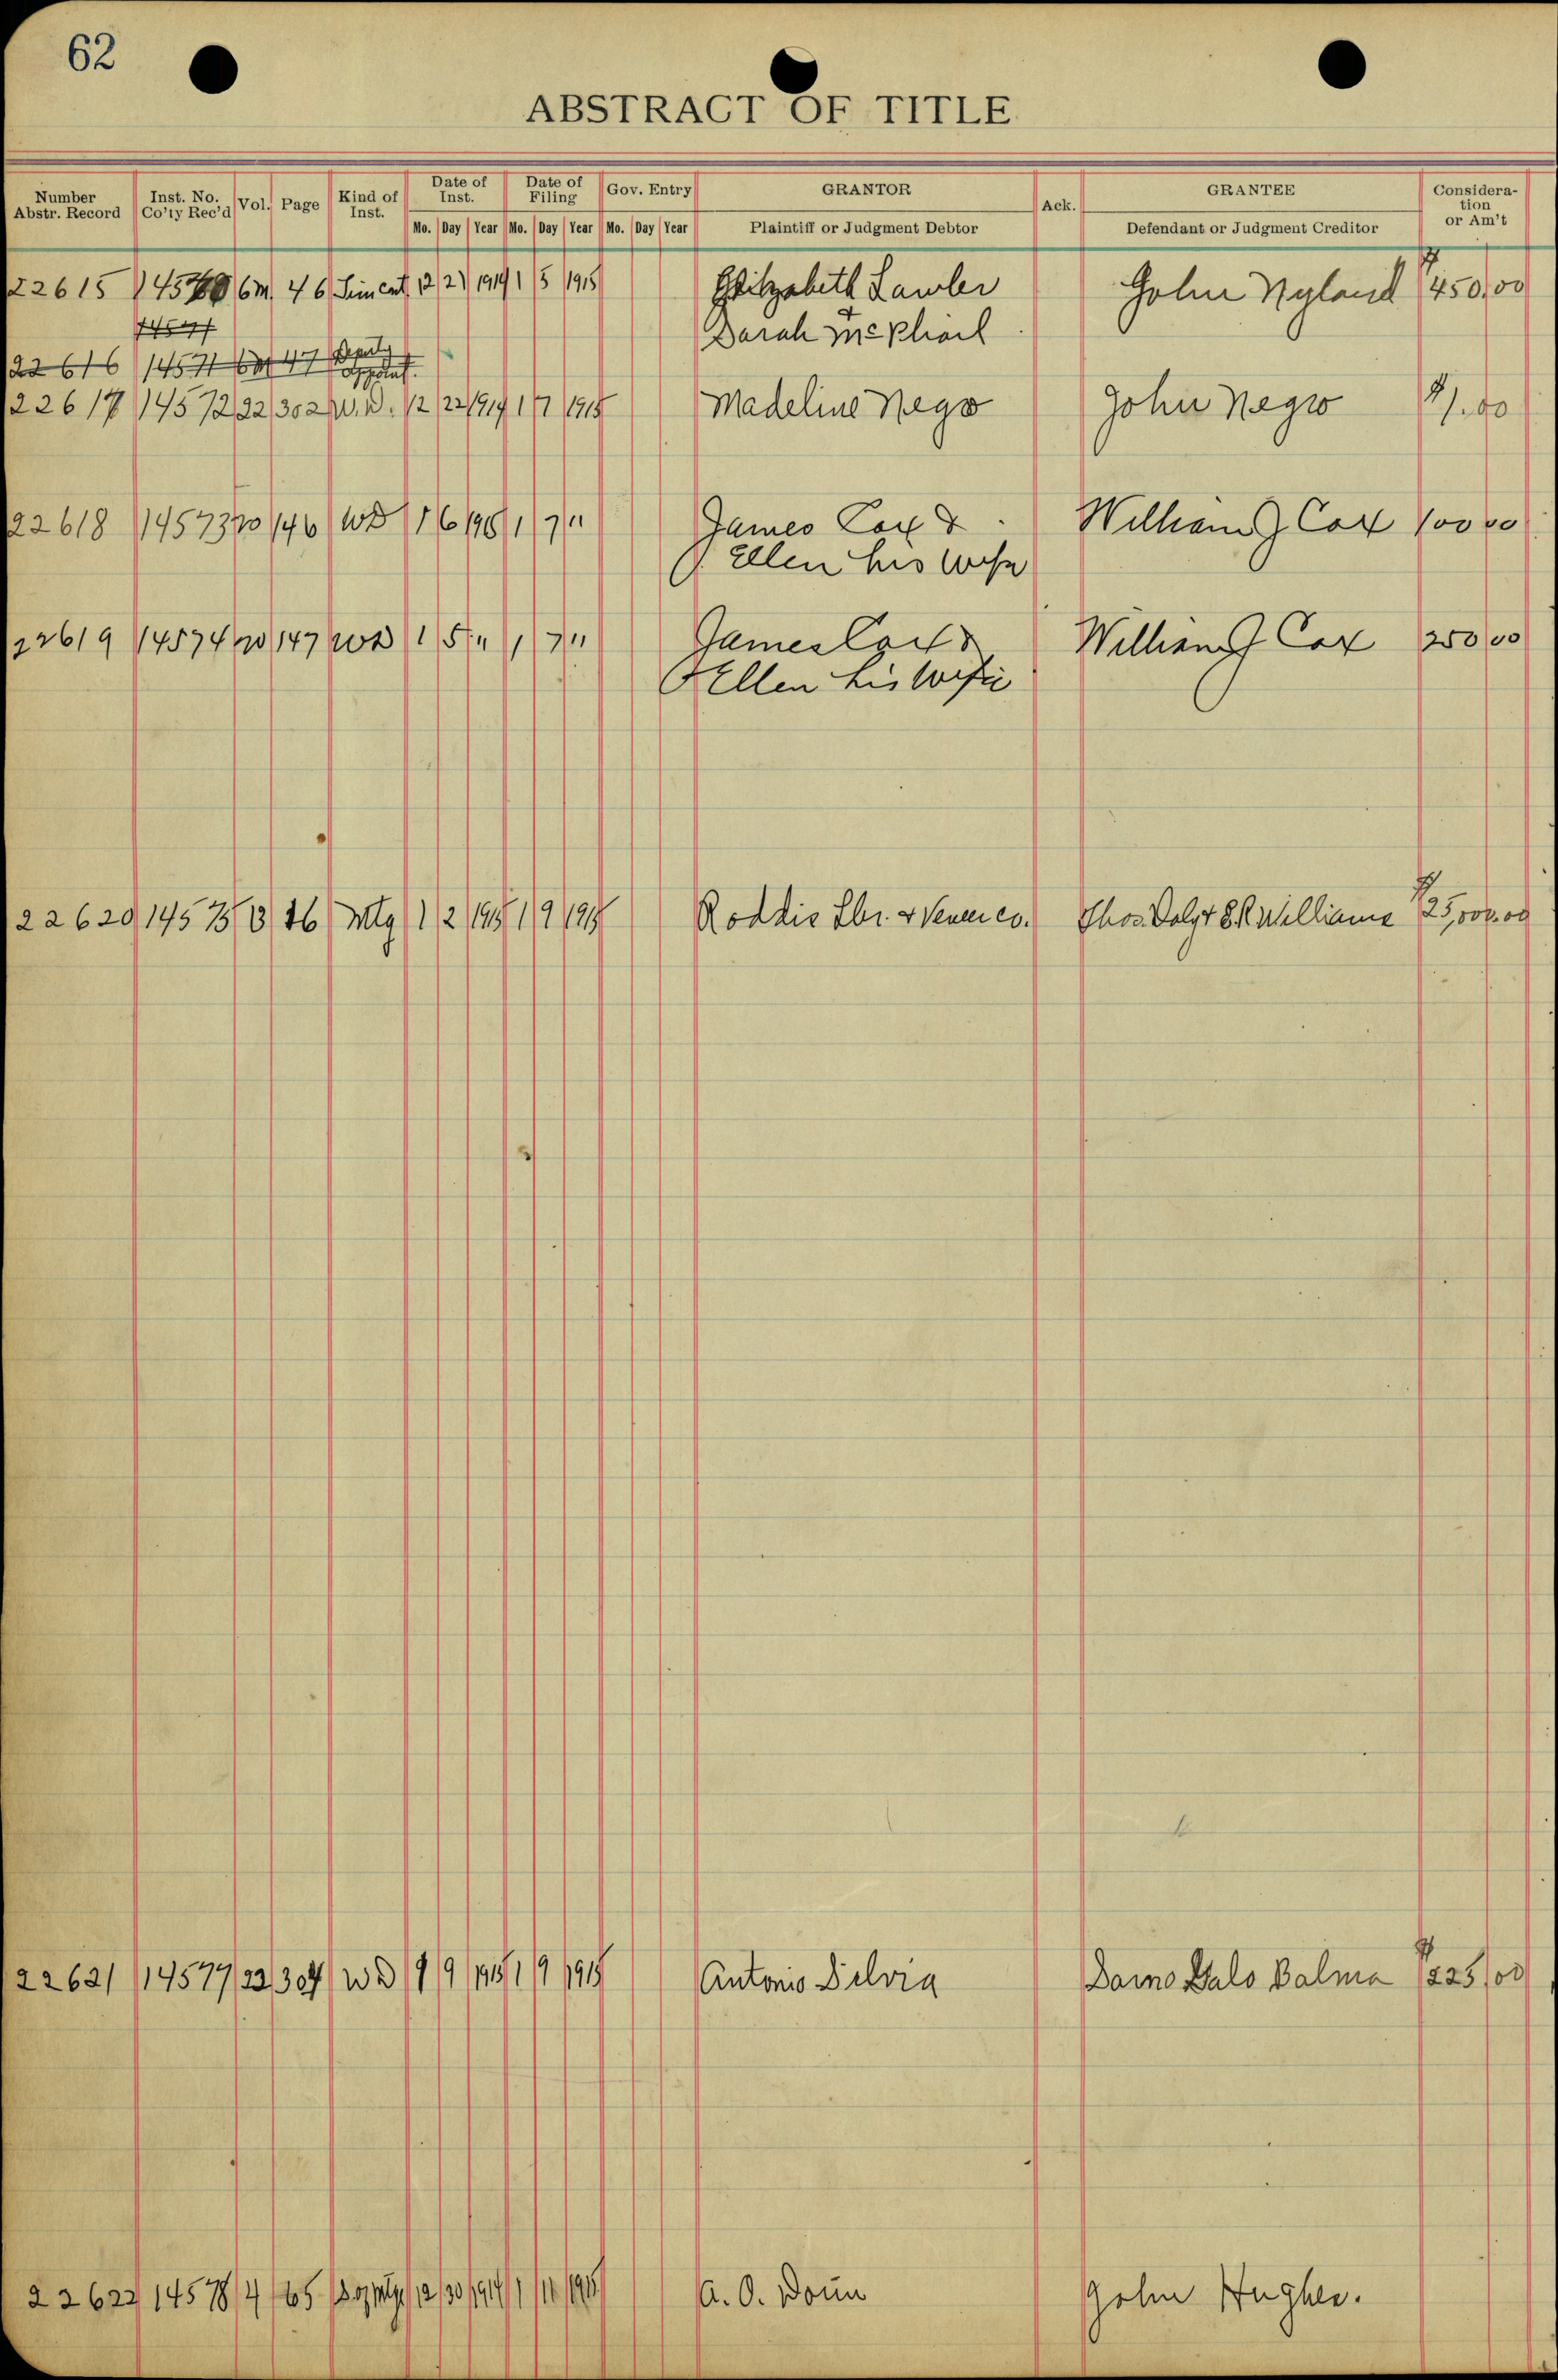 62
ABSTRACT OF TITLE
Number Abstr. Record Inst. No. Co'ty Rec'd Vol. Page Kind of Inst. Date of Inst. Date of Filing Gov. Entry GRANTOR Ack. GRANTEE Consideration or Am't
Mo. Day Year Mo. Day Year Mo. Day Year Plaintiff or Judgment Debtor Defendant or Judgment Creditor
22615 6M. 46 12 21 1914 1 5 1915 Elizabeth Lawler John Nyland $450.00
14571 Sarah McPhail
22616 14571 6M 47 Deputy Appoint.
22617 14572 22 302 W.D. 12 22 1914 1 7 1915 Madeline Negro John Negro $1.00
22618 14573 20 146 WD 1 6 1915 1 7 " James Cox & William J Cox 100 00
Ellen his wife
22619 14574 20 147 WD 1 5 " 1 7 " James Cox & William J Cox 250 00
Ellen his wife
22620 14575 B Mtg 1 2 1915 1 9 1915 Roddis Lbr. & Veneer Co. Thos. Daly & Williams $25,000.00
22621 14577 22 304 WD 1 9 1915 1 9 1915 Antonio Balma $225.00
22622 14578 4 65 12 30 1914 1 11 1915 A. O. John Hughes.